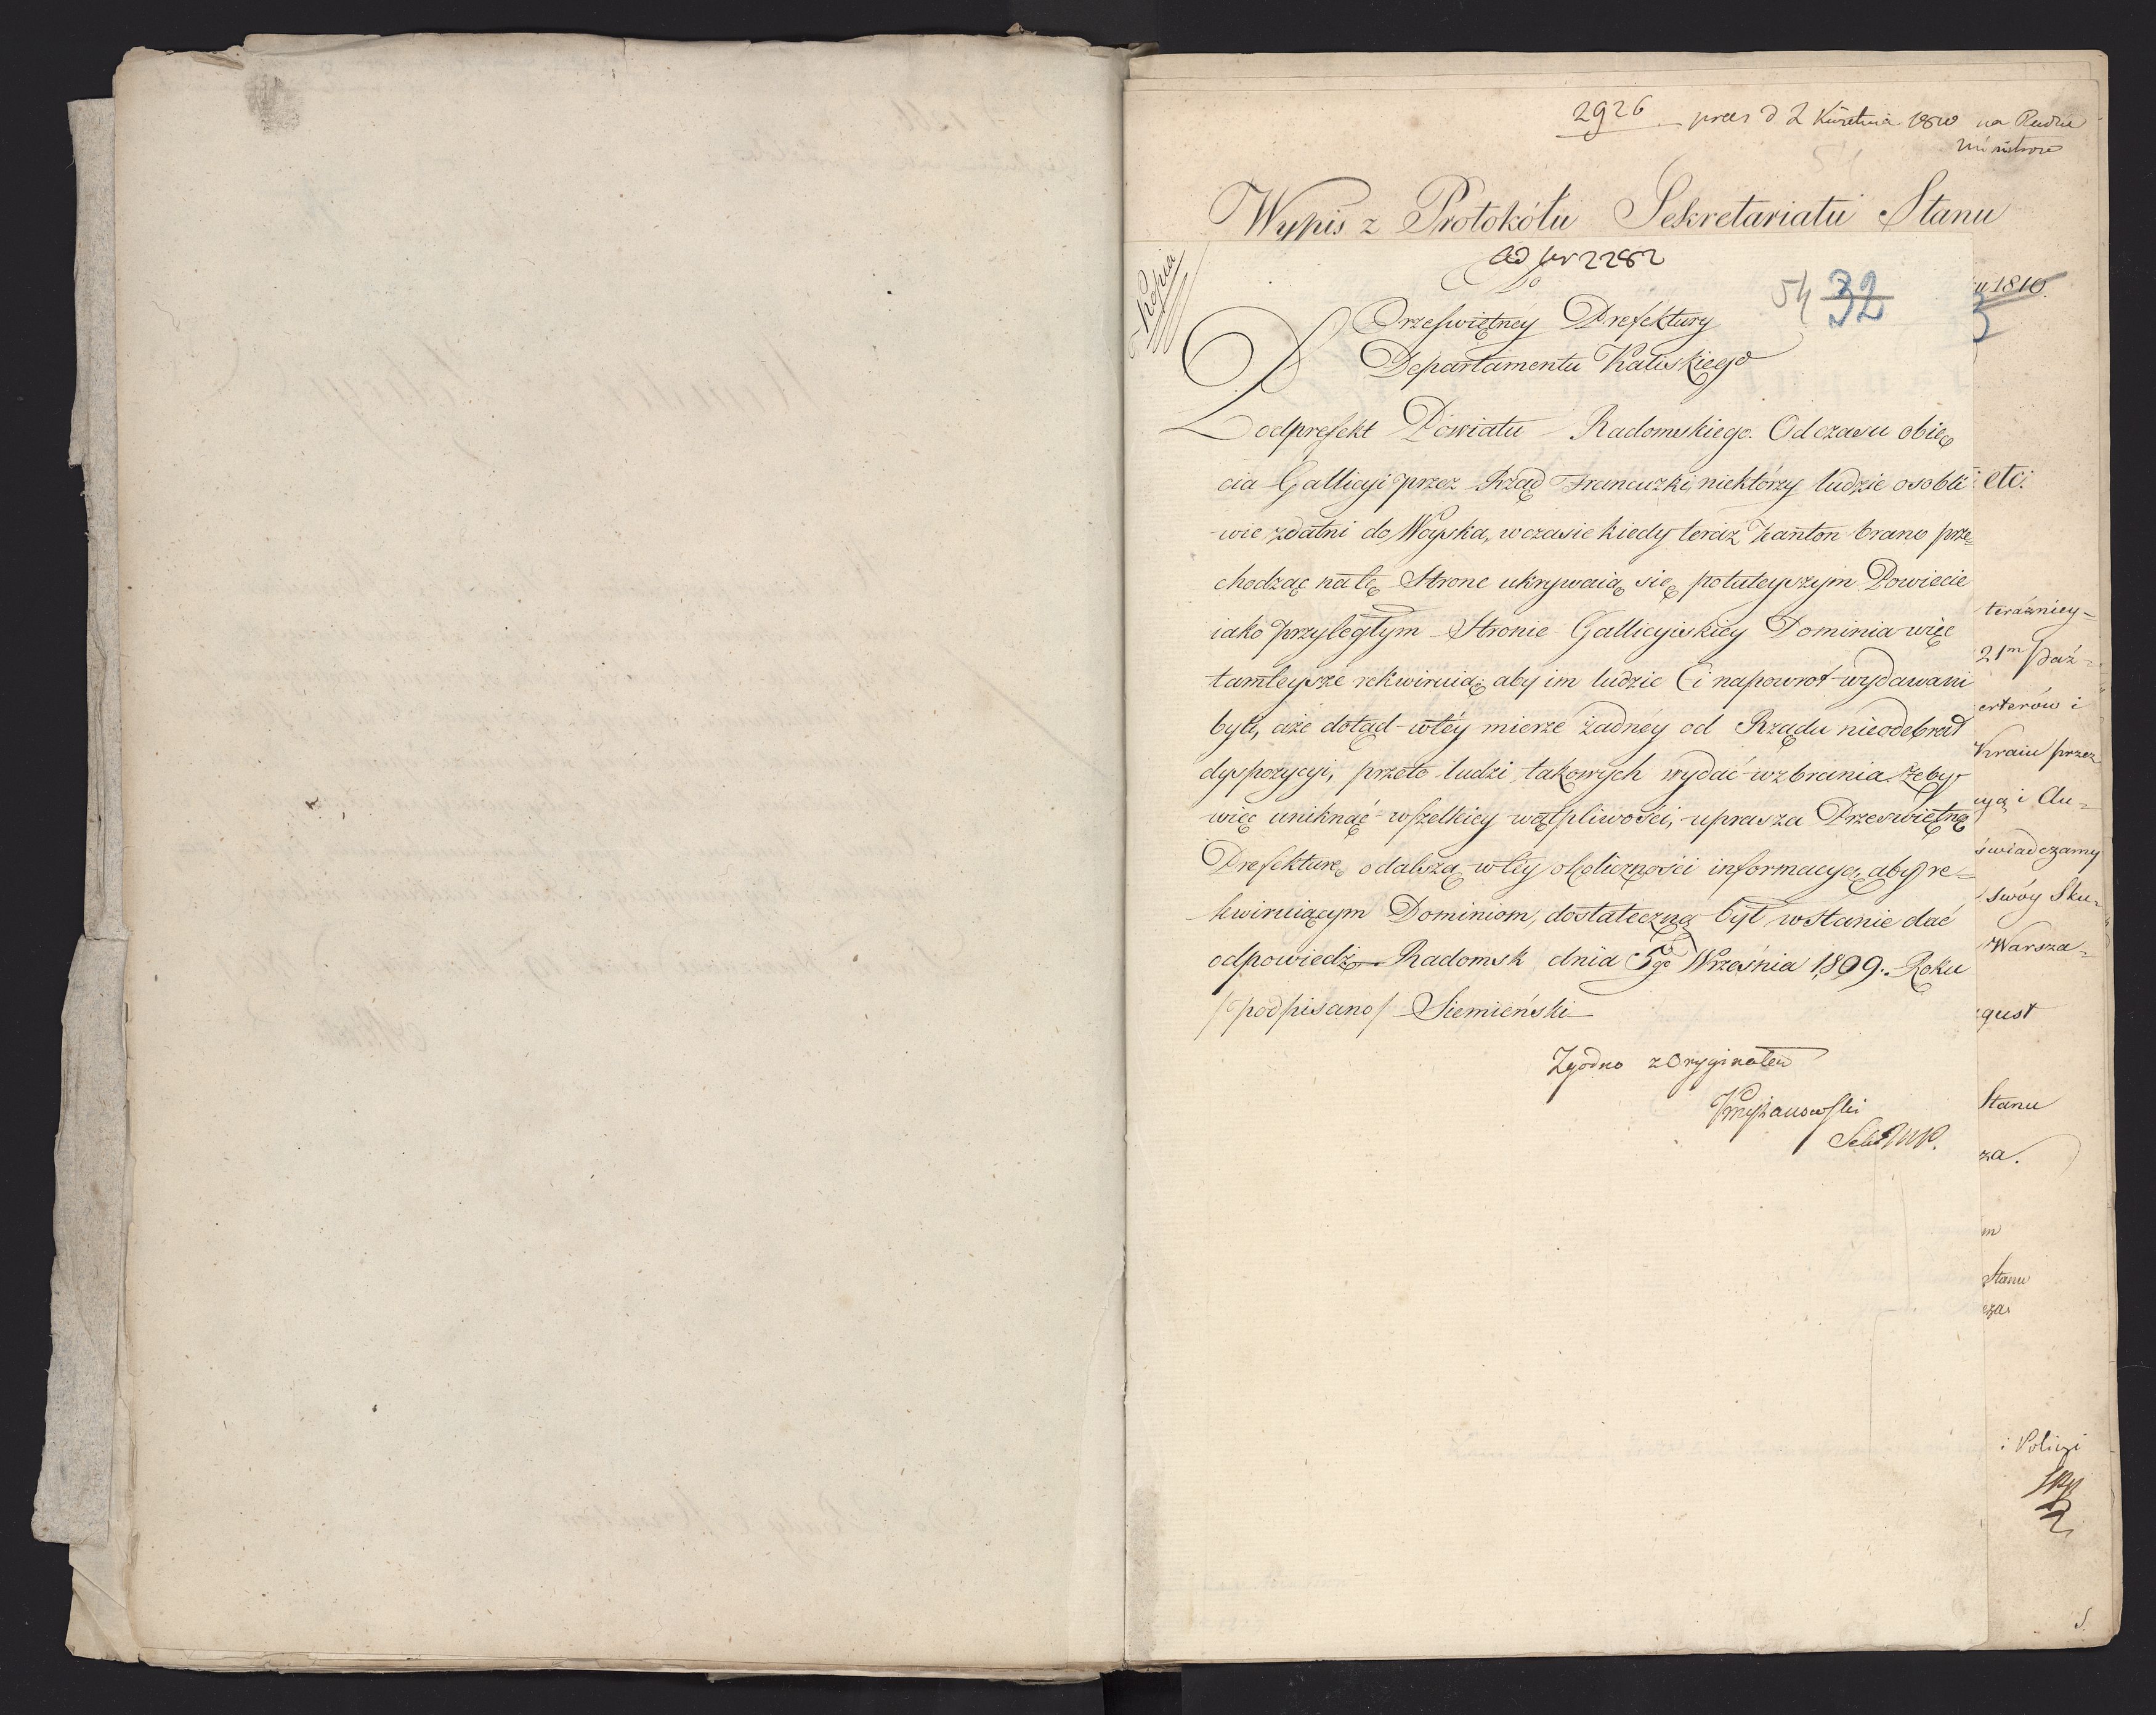 2926 pres d 2 Kwietnia 1810 na Radzie
Ministrow
Wypis z Protokółu Sekretariatu Stanu
Kopia
ad nr 2282
Do
54 32
Przeświętney Prefektury
Departamentu Kaliskiego
Podprefekt Powiatu Radomskiego. Od czasu obię
cia Gallicyi przez Rząd Francuzki, niektórzy ludzie osobli
wie zdatni do Woyska, w czasie kiedy teraz Kanton brano prze=
chodząc na tę Stronę ukrywaią się po tuteyszym Powiecie
iako przyległym Stronie Gallicyiskiey Dominia więc
tamteysze rekwiruią, aby im ludzie Ci napowrot wydawani
byli, aże dotąd w téy mierze żadnéy od Rządu nieodebrał
dyspozycyi, przeto ludzi takowych wydać wzbrania. Żeby
więc uniknąć wszelkiey wątpliwości, uprasza Prześwietną
Prefekturę o dalszą w téy okoliczności informacyą, aby re=
kwiruiącym Dominiom, dostateczną był w stanie dać
odpowiedź Radomsk dnia 5go Września 1809. Roku
/podpisano/ Siemieński
Zgodno z Oryginałem
Krzyżanowski
u 1810.
3
etc:
teraźniey=
21m Paź=
erterów i
Kraiu przez
cyą i Au=
świadczamy
swóy Sku=
Warsza=
gust
Stanu
za.
m
Stanu
cza.
i Policyi